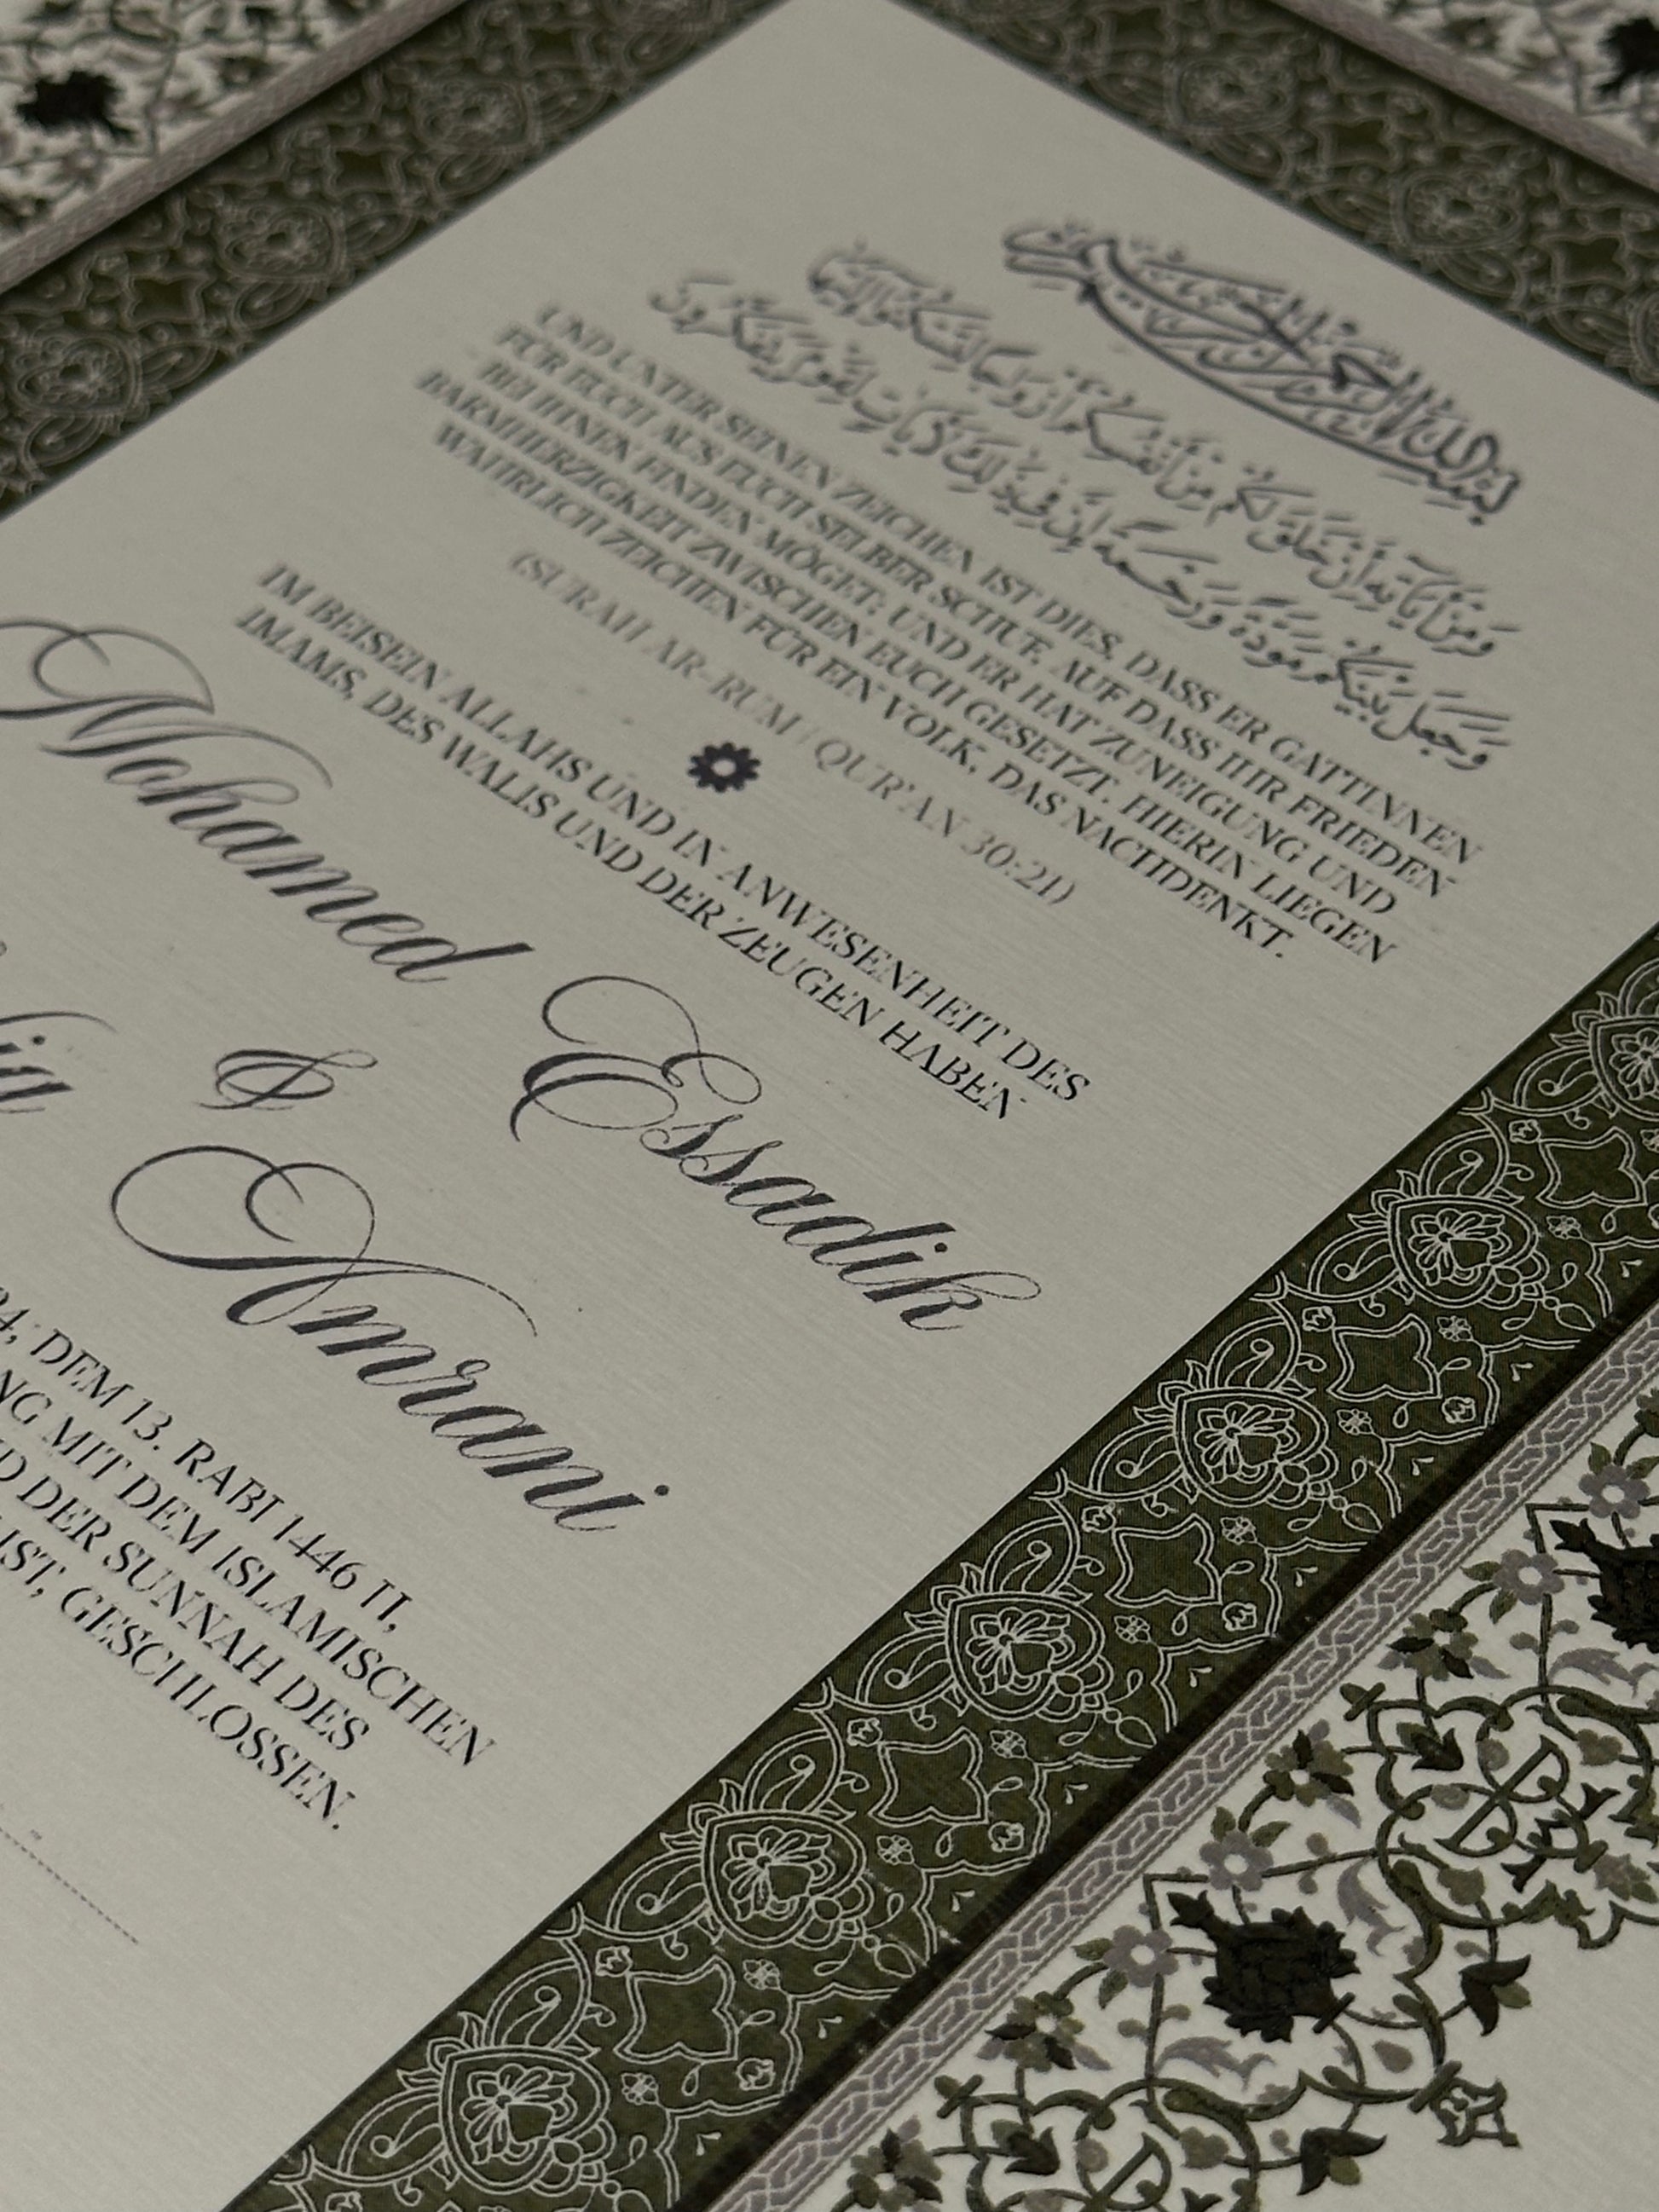 بسم الله الرحمن الرحيم
وَمِنْ آيَاتِهِ أَنْ خَلَقَ لَكُم مِّنْ أَنفُسِكُمْ أَزْوَاجًا لِّتَسْكُنُوا إِلَيْهَا
وَجَعَلَ بَيْنَكُم مَّوَدَّةً وَرَحْمَةً إِنَّ فِي ذَٰلِكَ لَآيَاتٍ لِّقَوْمٍ يَتَفَكَّرُونَ
UND UNTER SEINEN ZEICHEN IST DIES, DASS ER GATTINNEN
FÜR EUCH AUS EUCH SELBER SCHUF, AUF DASS IHR FRIEDEN
BEI IHNEN FINDEN MÖGET; UND ER HAT ZUNEIGUNG UND
BARMHERZIGKEIT ZWISCHEN EUCH GESETZT. HIERIN LIEGEN
WAHRLICH ZEICHEN FÜR EIN VOLK, DAS NACHDENKT.
(SURAH AR-RUM / QUR'AN 30:21)
IM BEISEIN ALLAHS UND IN ANWESENHEIT DES
IMAMS, DES WALIS UND DER ZEUGEN HABEN
Mohamed Essadik
&
Amrani
DEM 13. RABI 1446 H,
MIT DEM ISLAMISCHEN
DER SUNNAH DES
IST, GESCHLOSSEN.